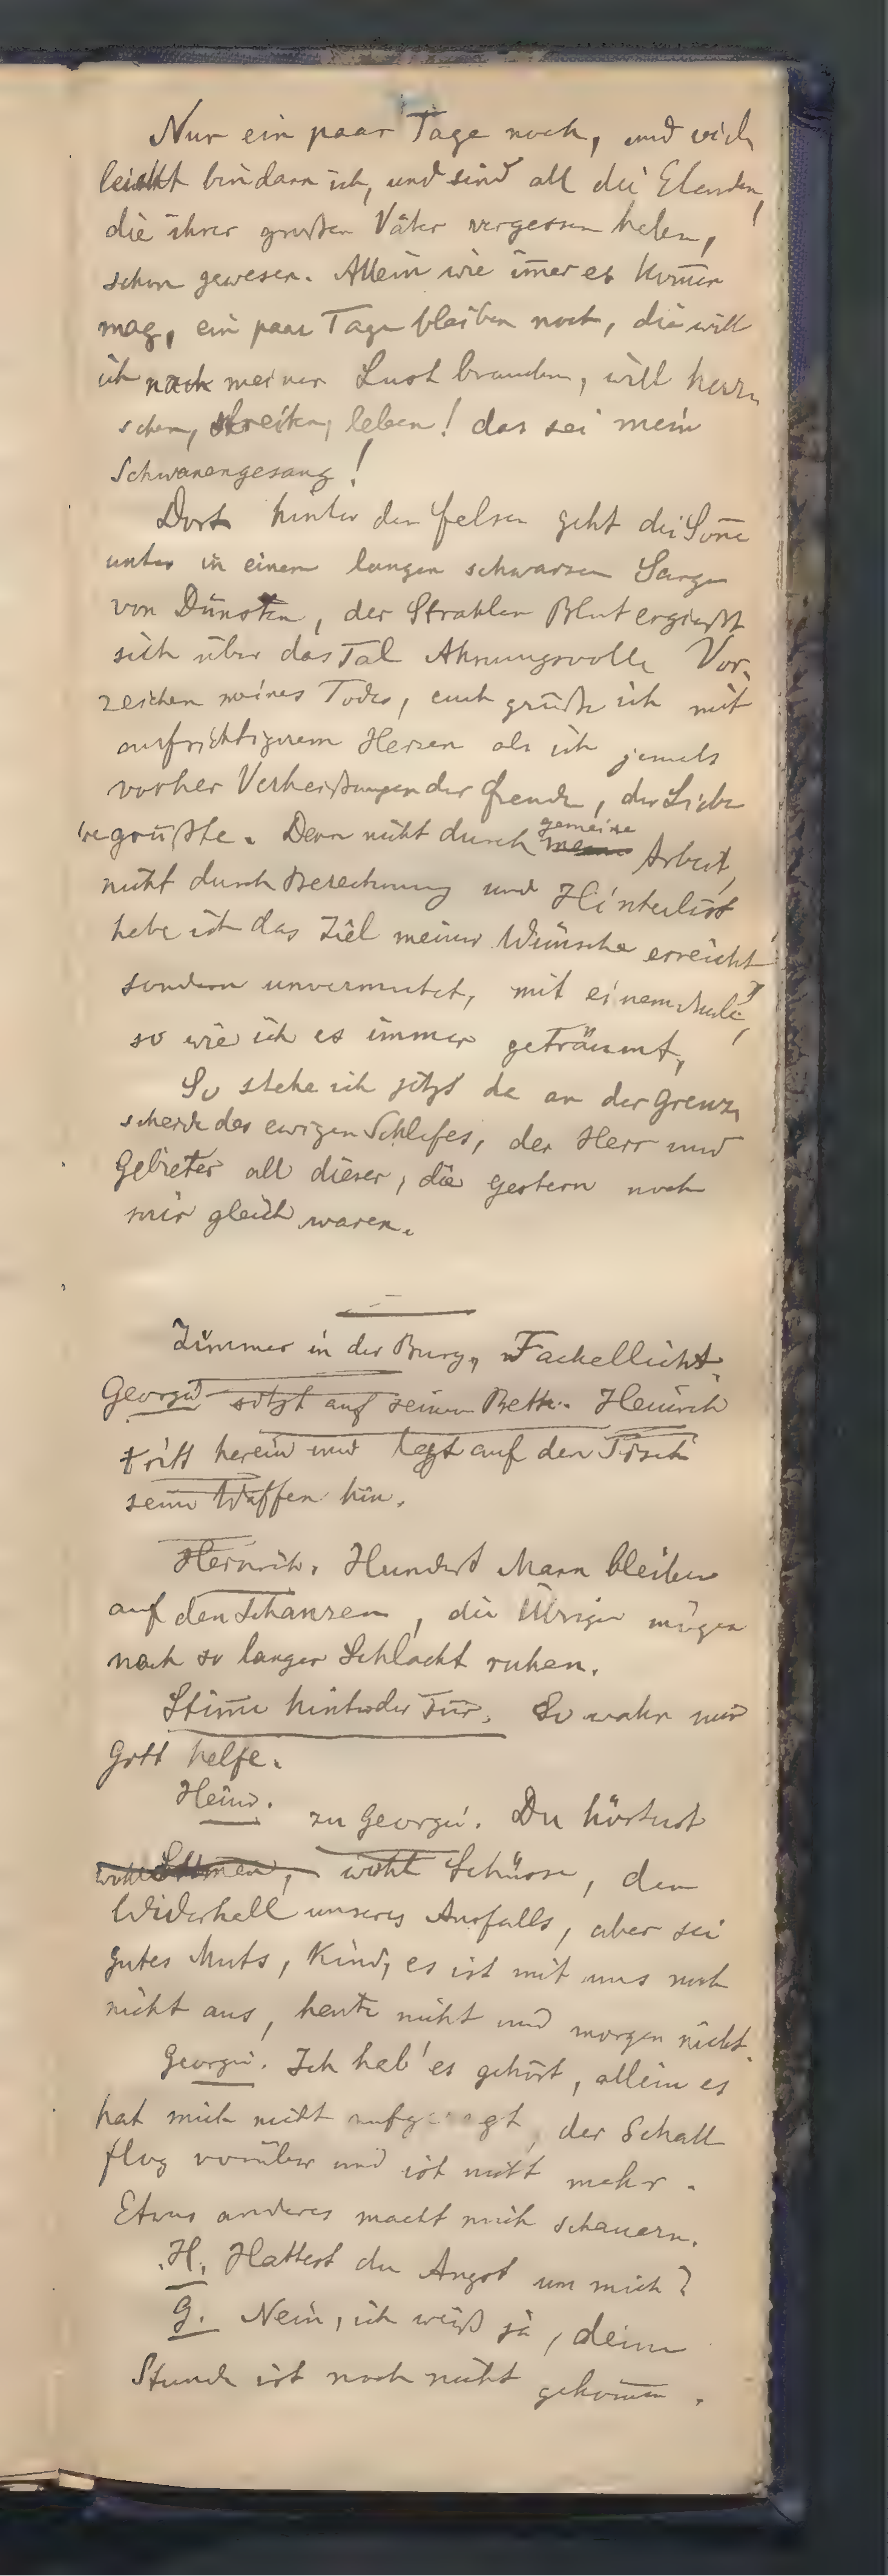 Nur ein paar Tage noch, und viel
leicht bin dann ich, und sind all die Elenden,
die ihrer großen Väter vergessen haben,
schon gewesen. Allein wie im̅er es kom̅en
mag, ein paar Tage bleiben noch, die will
ich nach meiner Lust brauchen, will herr
schen, streiten, leben! das sei mein
Schwanengesang!
Dort hinter den Felsen geht die Son̅e
unter in einem langen schwarzen Sarge
von Dünsten, der Strahlen Blut ergießt
sich über das Tal Ahnungsvolle Vor-
zeichen meines Todes, euch grüße ich mit
aufrichtigerem Herzen als ich jemals
vorher Verheißungen der Freude, der Liebe
begrüßte. Denn nicht durch gemeine Arbeit,
nicht durch Berechnung und Hinterlist
habe ich das Ziel meiner Wünsche erreicht,
sondern unvermutet, mit einem Male,
so wie ich es immer geträumt,
So stehe ich jetzt da an der Grenz
scheide des ewigen Schlafes, der Herr und
Gebieter all dieser, die gestern noch
mir gleich waren.
Zimmer in der Burg, Fackellicht
Georgie sitzt auf seinem Bette. Heinrich
tritt herein und legt auf den Tisch
seine Waffen hin.
Heinrich. Hundert Mann bleiben
auf den Schanzen, die Übrigen mögen
nach so langer Schlacht ruhen.
Stim̅e hinter der Tür. So wahr mir
Gott helfe.
Heinr. zu Georgie. Du hörtest
wohl Schüsse, den
Widerhall unseres Ausfalls, aber sei
gutes Muts, Kind, es ist mit uns noch
nicht aus, heute nicht und morgen nicht.
Georgie. Ich hab' es gehört, allein es
hat mich nicht aufgeregt, der Schall
flog vorüber und ist nicht mehr.
Etwas anderes macht mich schauern.
H. Hattest du Angst um mich?
G. Nein, ich weiß ja, deine
Stunde ist noch nicht gekom̅en.